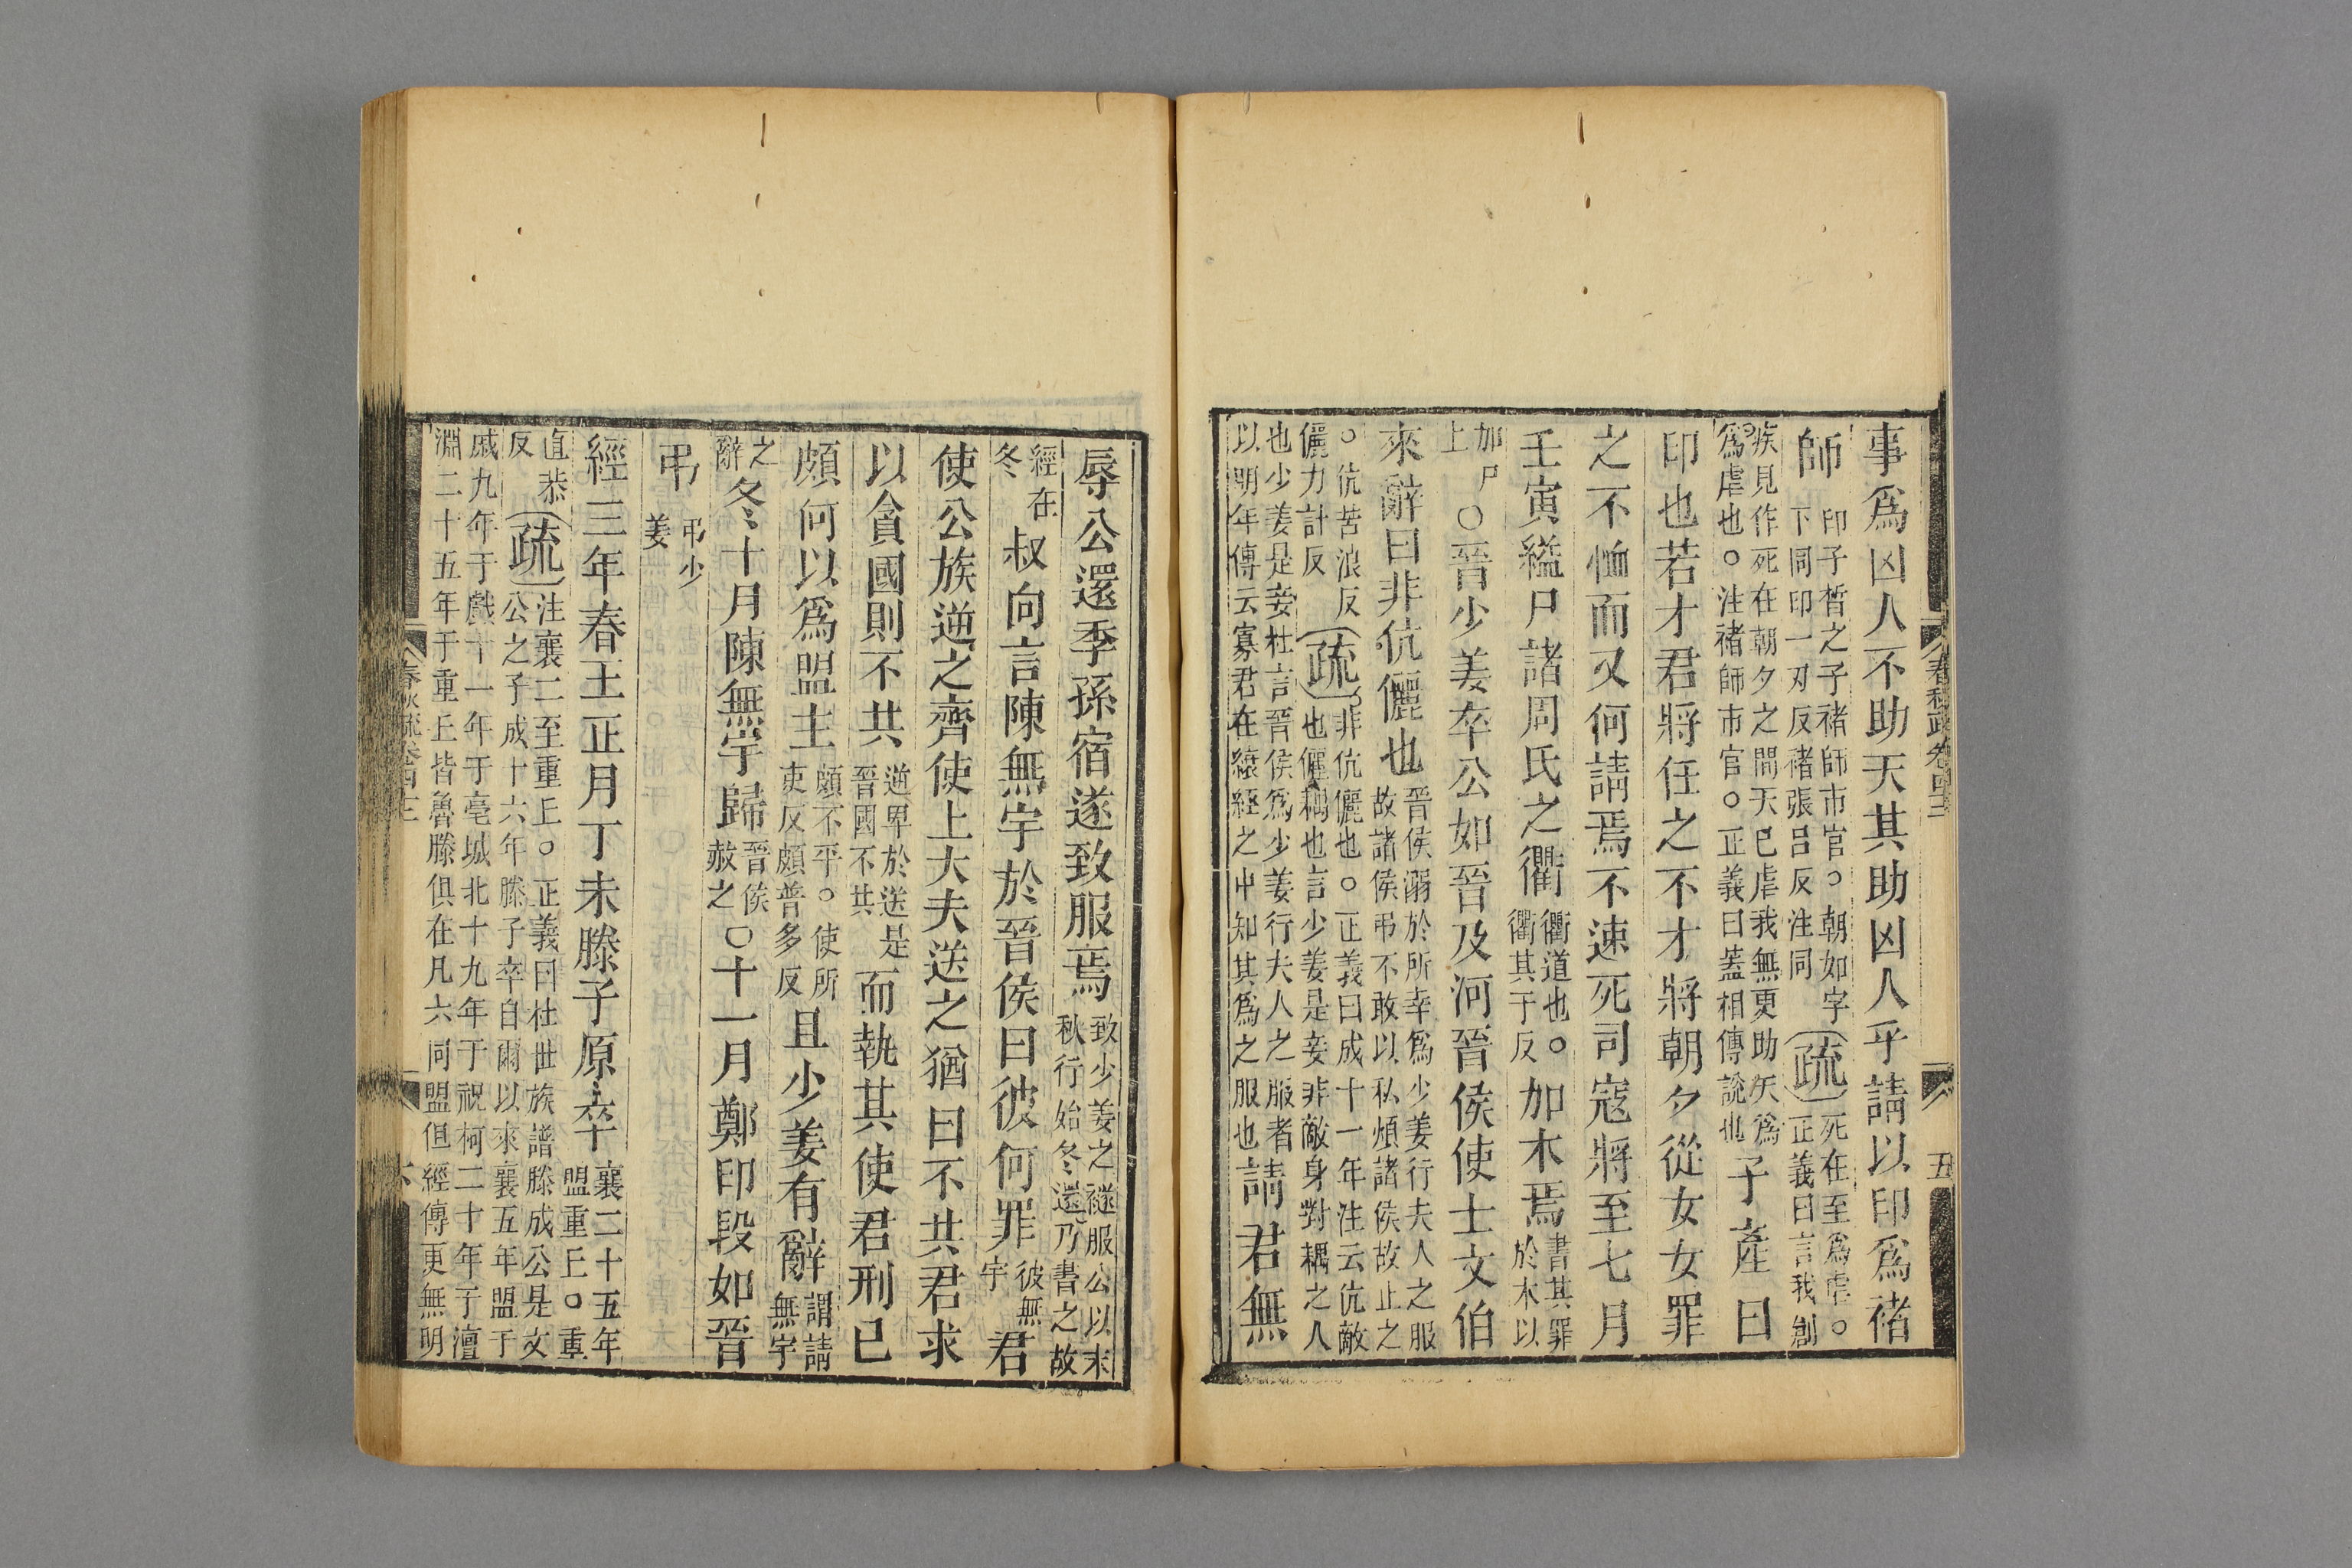 事爲凶人不助天其助凶人乎請以印爲褚
師 印子晳之子褚師市官○朝如字 下同印一刃反褚張呂反注同 疏 死在至爲虐○ 正義曰言我創
疾見作死在朝夕之間天已虐我無更助天爲 爲虐也○注褚師市官○正義曰蓋相傳說也 子產曰
印也若才君將任之不才將朝夕從女女罪
之不恤而又何請焉不速死司寇將至七月
壬寅縊尸諸周氏之衢 衢道也○ 衢其于反 加木焉 書其罪 於木以
加尸 上 ○晉少姜卒公如晉及河晉侯使士文伯
來辭曰非伉儷也 晉侯溺於所幸爲少姜行夫人之服 故諸侯弔不敢以私煩諸侯故止之
○伉苦浪反 儷力計反 疏 非伉儷也○正義曰成十一年注云伉敵 也儷耦也言少姜是妾非敵身對耦之人
也少姜是妾杜言晉侯爲少姜行夫人之服者 以明年傳云寡君在縗絰之中知其爲之服也 請君無
春秋疏卷四十二
五
辱公還季孫宿遂致服焉 致少姜之襚服公以末 秋行始冬還乃書之故
經在 冬 叔向言陳無宇於晉侯曰彼何罪 彼無 宇 君
使公族逆之齊使上大夫送之猶曰不共君求
以貪國則不共 逆卑於送是 晉國不共 而執其使君刑已
頗何以爲盟主 頗不平○使所 吏反頗普多反 且少姜有辭 謂請 無宇
之 辭 冬十月陳無宇歸 晉侯 赦之 ○十一月鄭印段如晉
弔 弔少 姜
經三年春王正月丁未滕子原卒 襄二十五年 盟重丘○重
直恭 反 疏 注襄二至重丘○正義曰杜世族譜滕成公是文 公之子成十六年滕子卒自爾以來襄五年盟于
戚九年于戲十一年于亳城北十九年于祝柯二十年于澶
淵二十五年于重丘皆魯滕俱在凡六同盟但經傳更無明
春秋疏卷四十二
六